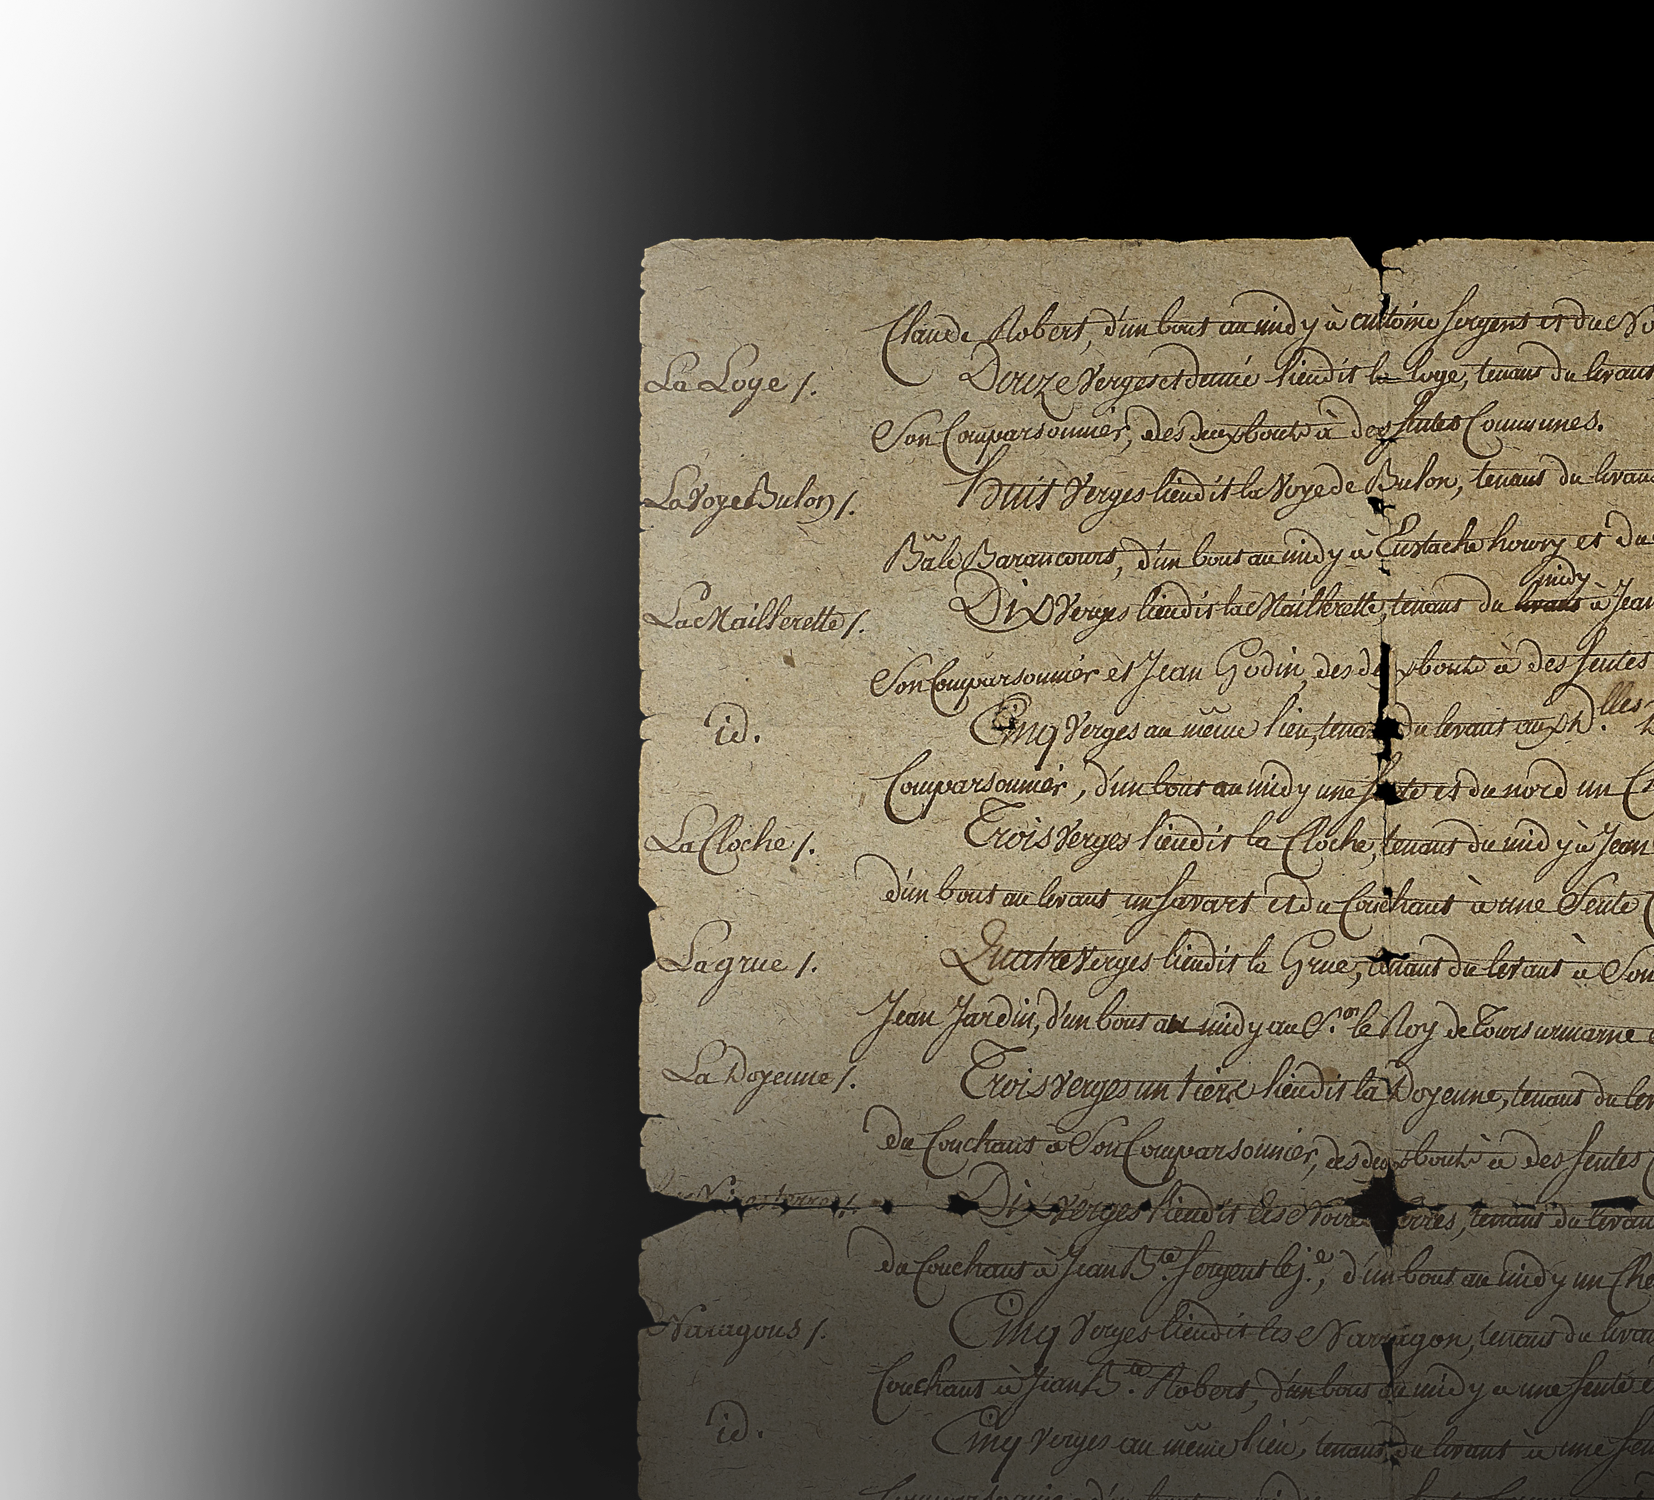 Claude Robert, d'un bout au midy à antoine sergent et du No
La Loge /. Douze Verges et demie lieudit la loge, tenant du levant
Son Comparsonnier, des deux bouts à des sentes Communes.
La Voye Bulon /. huit Verges lieudit la Voye de Bulon, tenant du levant
Bâle Barancourt, d'un bout au midy à Eustache howry et du
midy
La Maillerette /. Dix Verges lieudit la Maillerette, tenant du levant à Jean
Son Comparsonnier et Jean Godin, des deux bouts à des sentes
id. Cinq Verges au même lieu, tenant du levant aux D.lles
Comparsonnier, d'un bout au midy une sente et du nord un
La Cloche /. Trois Verges lieudit la Cloche, tenant du midy à Jean
d'un bout au levant un savart et du Couchant à une Sente
La grue /. Quatre Verges lieudit la Grue, tenant du levant à Son
Jean Jardin, d'un bout au midy au S.r le Roy de Tours surmarne
La Doyenne /. Trois Verges un tiers lieudit la Doyenne, tenant du lev
du Couchant à Son Comparsonnier, des deux bouts à des sentes
Les Noires terres /. Dix Verges lieudit les Noires terres, tenant du levan
du Couchant à Jean B.te sergent le j.e, d'un bout au midy un Che
Naragons /. Cinq Verges lieudit les Narragon, tenant du levan
Couchant à Jean B.te Robert, d'un bout au midy à une sente
id. Cinq Verges au même lieu, tenant du levant à une sen